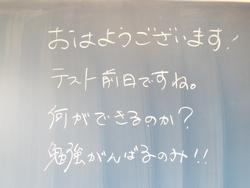 おはようございます!
テスト前日ですね。
何ができるのか?
勉強がんばるのみ!!